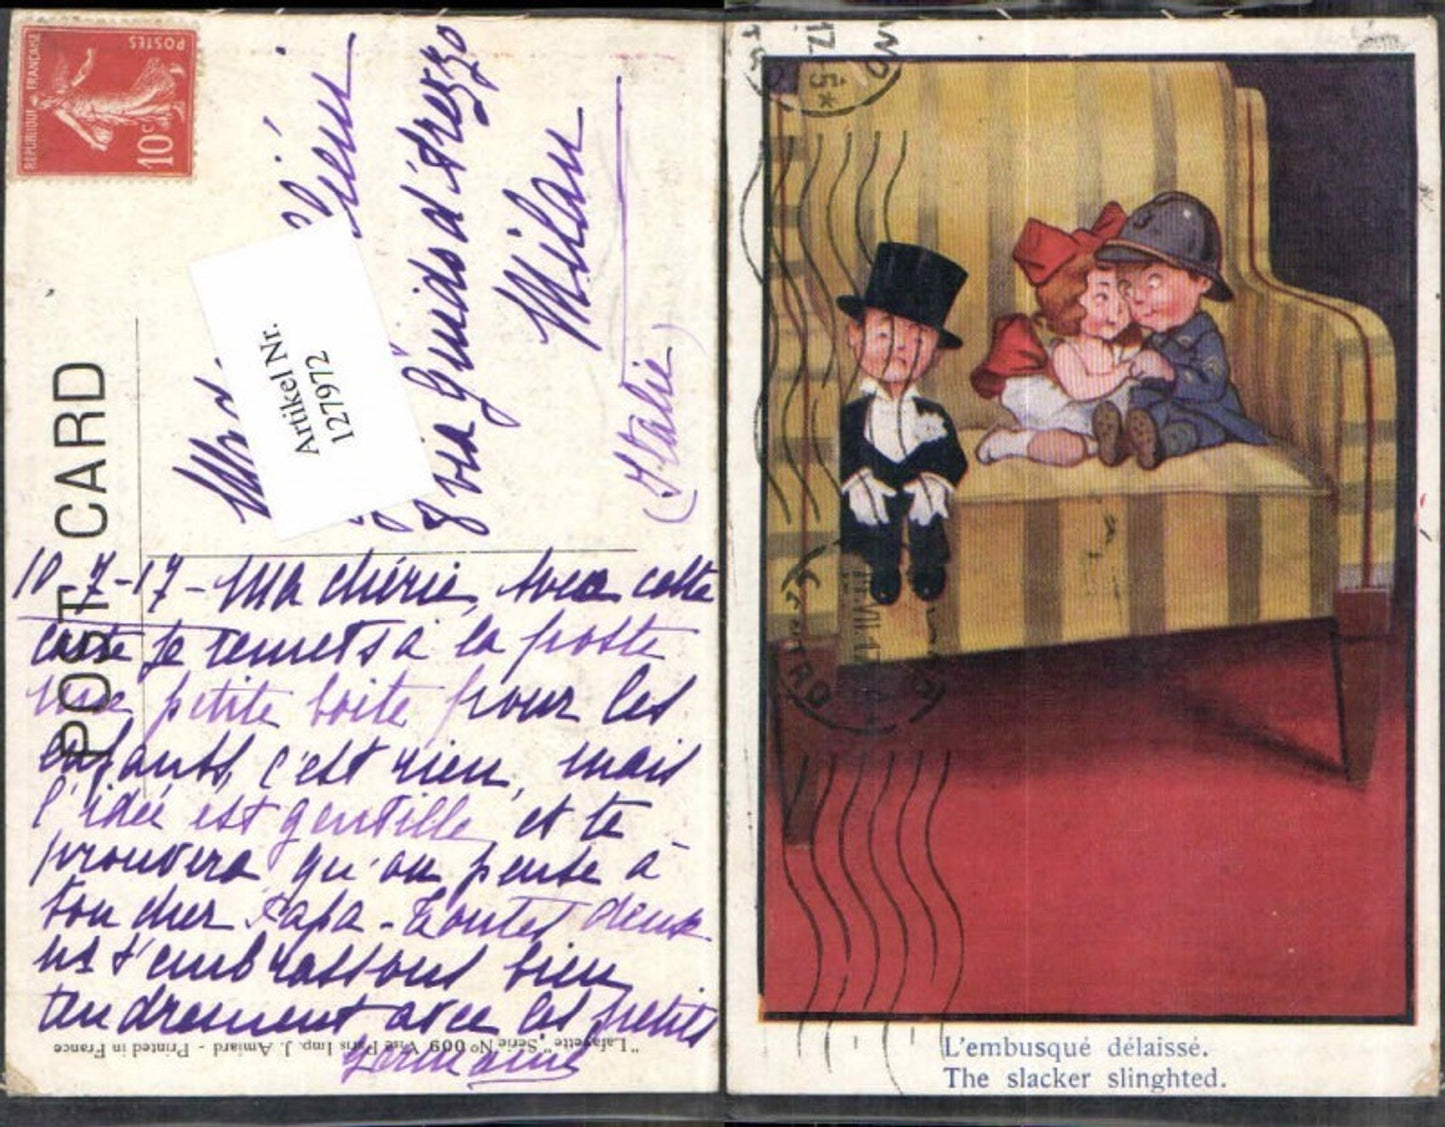 POSTES
REPUBLIQUE FRANÇAISE
10c
POST CARD
Via Guido d'Arezzo
Milan
(Italie)
Artikel Nr.
127972
10-7-17- Ma chérie, Avec cette
carte je remets à la poste
une petite boîte pour les
enfants, c'est rien, mais
l'idée est gentille et te
prouvera qu'on pense à
ton cher Papa - Toutes deux
ns t'embrassons bien
tendrement avec les petits
Germaine
"Lafayette" Série No 009 Vise Paris Imp. J. Amiard - Printed in France
L'embusqué délaissé.
The slacker slinghted.